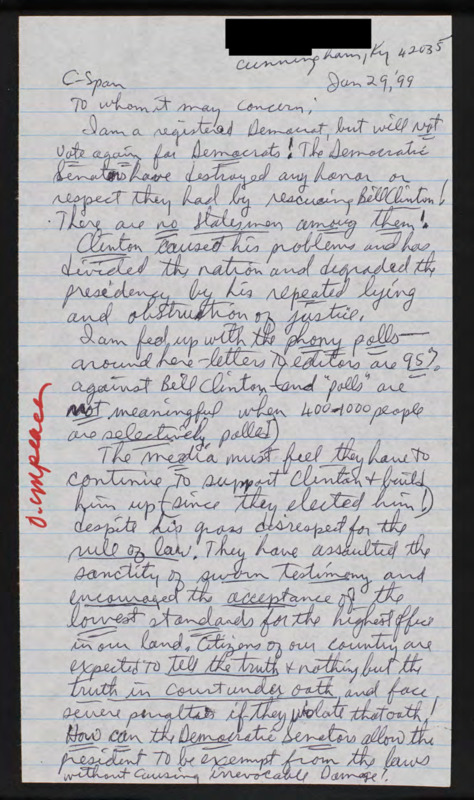 Cunningham, Ky 42035
Jan 29, '99
C-Span
To whom it may concern;
I am a registered Democrat, but will not
vote again for Democrats! The Democratic
Senators have destroyed any honor or
respect they had by rescuing Bill Clinton!
There are no Statesmen among them!
Clinton caused his problems and has
divided the nation and degraded the
presidency by his repeated lying
and obstruction of justice.
I am fed up with the phony polls—
around here - letters to editors are 95%
against Bill Clinton - and "polls" are
not meaningful when 400-1000 people
are selectively polled)
The media must feel they have to
continue to support Clinton & build
him up (since they elected him!)
despite his gross disrespect for the
rule of law. They have assaulted the
sanctity of sworn testimony and
encouraged the acceptance of the
lowest standards for the highest office
in our land. Citizens of our country are
expected to tell the truth & nothing but the
truth in court under oath, and face
severe penalties if they violate that oath!
How can the Democratic Senators allow the
president to be exempt from the laws
without causing irrevocable damage?
impeach